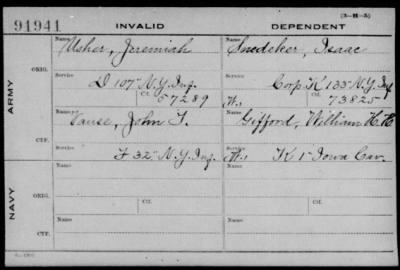 (3-H-5)
91941 INVALID DEPENDENT
Name Usher, Jeremiah Name Snedeker, Isaac
ARMY
ORIG. Service D 107" N.Y. Inf. Service Corp K 133" N.Y. Inf
Ctf. 67289 W. Ctf. 73825
Name Vause, John T. Name Gifford, William H. H.
CTF. Service F 32" N.Y. Inf. Service K 1" Iowa Cav.
Name Name
NAVY
ORIG. Service Ctf. Service Ctf.
Name Name
CTF. Service Service